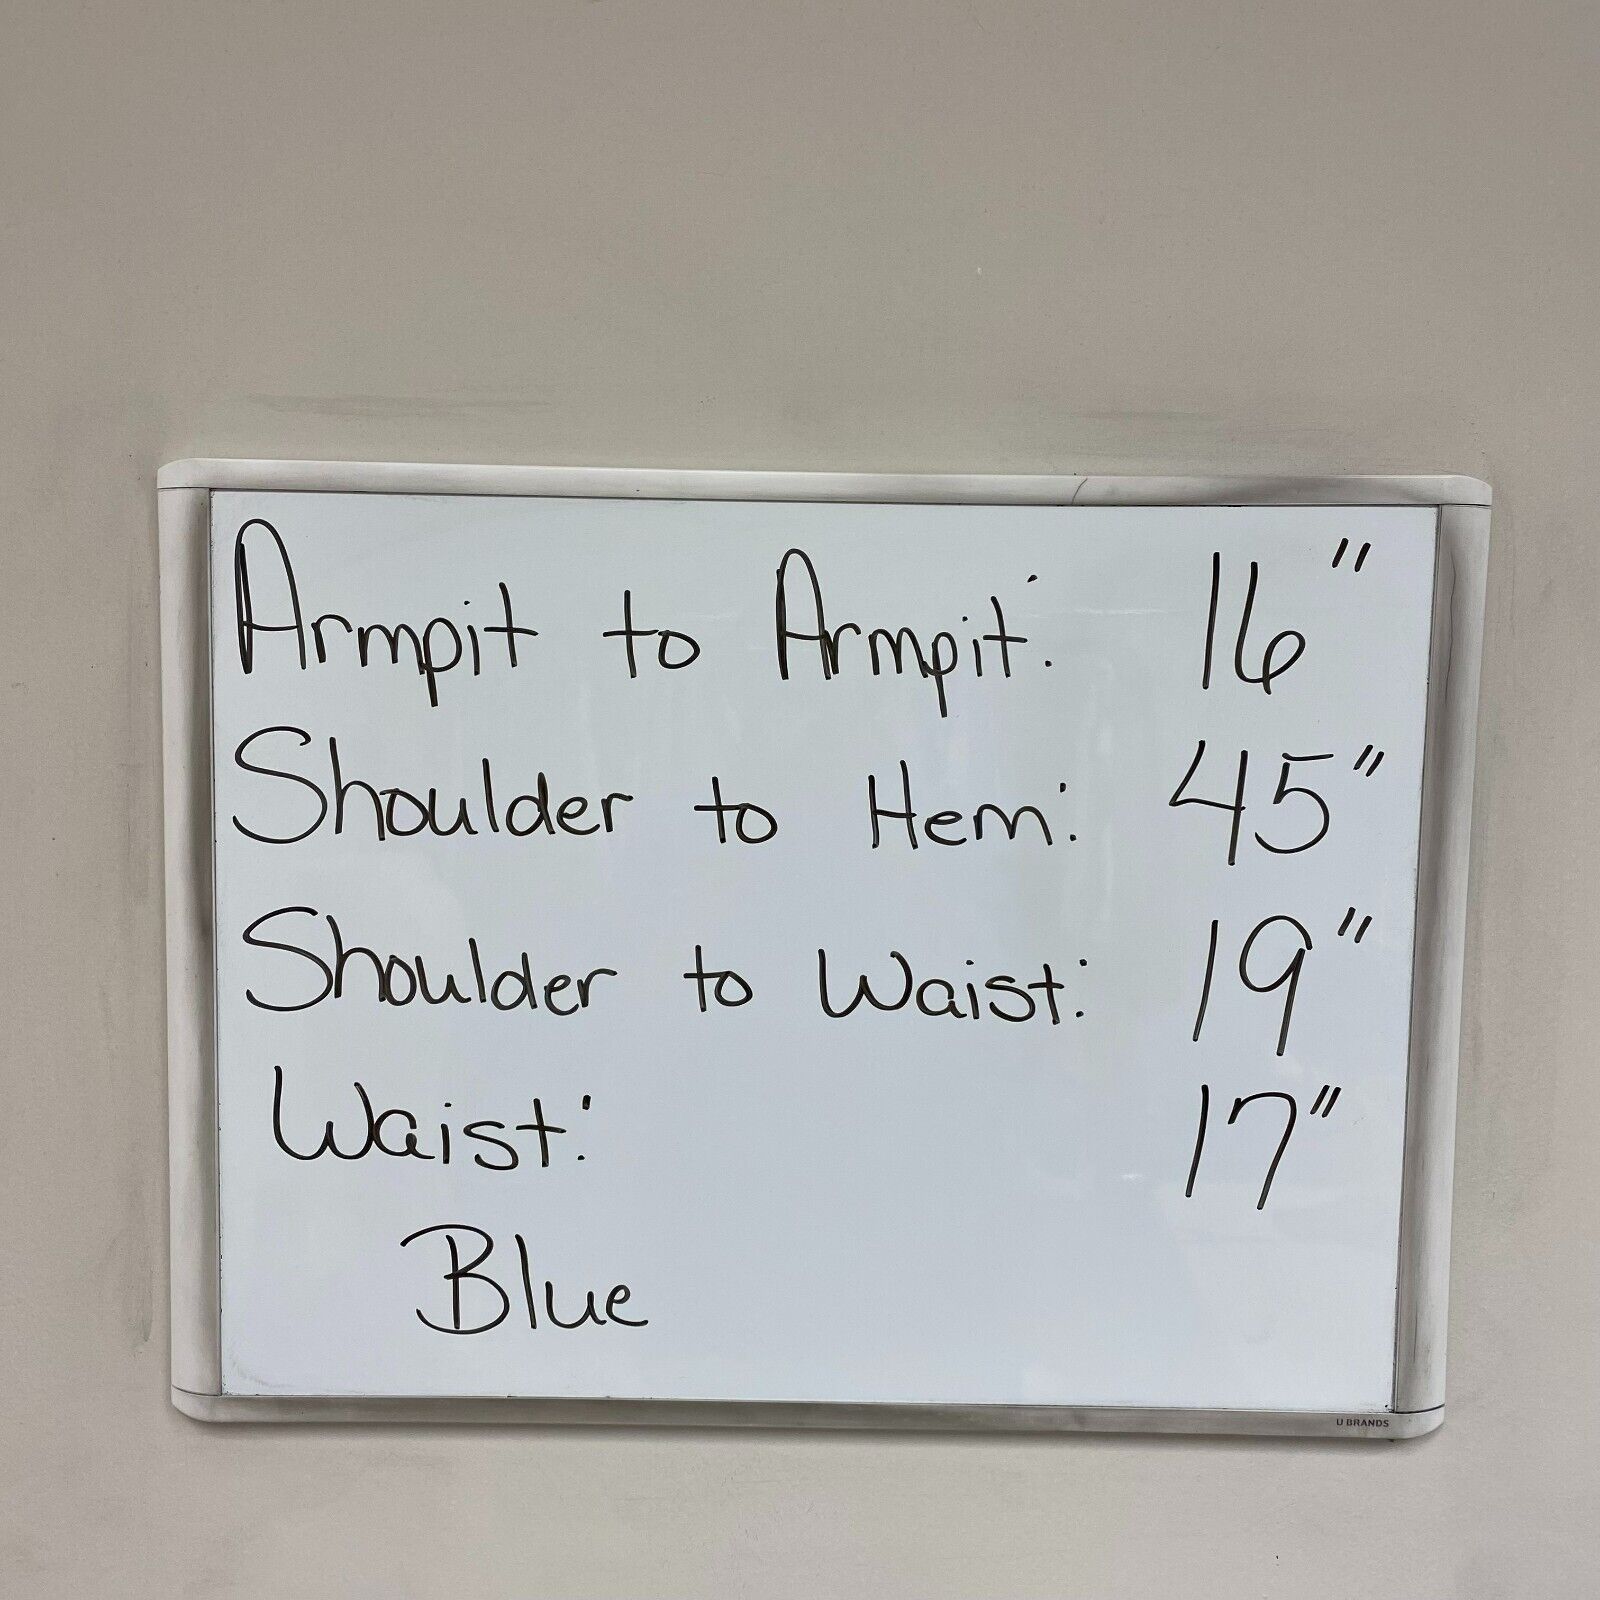 Armpit to Armpit: 16"
Shoulder to Hem: 45"
Shoulder to Waist: 19"
Waist: 17"
Blue
U BRANDS